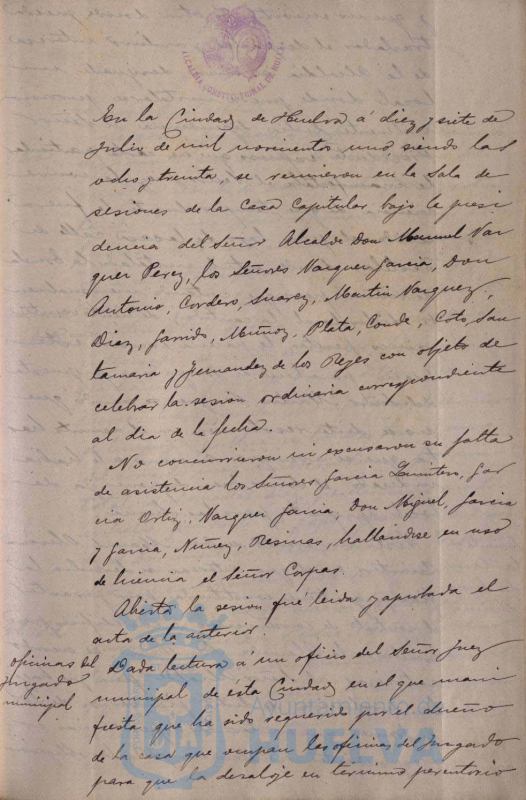 ALCALDIA CONSTITUCIONAL DE HUELVA
En la Ciudad de Huelva á diez y siete de
Julio de mil novecientos uno, siendo las
ocho y treinta, se reunieron en la Sala de
sesiones de la Casa Capitular bajo la presi
dencia del Señor Alcalde Don Manuel Vaz
quez Perez, los Señores Vazquez Garcia, Don
Antonio, Cordero, Suarez, Martin Vazquez,
Diaz, Garrido, Muñoz, Plata, Conde, Coto, San
tamaria y Fernandez de los Reyes con objeto de
celebrar la sesion ordinaria correspondiente
al dia de la fecha.
No concurrieron ni excusaron su falta
de asistencia los Señores Garcia Quintero, Gar
cia Ortiz, Vazquez Garcia, Don Miguel, Garcia
y Garcia, Nuñez, Resinas, hallandose en uso
de licencia el Señor Corpas.
Abierta la sesion fué leida y aprobada el
acta de la anterior.
oficinas del
Juzgado
municipal
Dada lectura á un oficio del Señor Juez
municipal de esta Ciudad en el que mani
fiesta que ha sido requerido por el dueño
de la casa que ocupan las oficinas del Juzgado
para que la desaloje en término perentorio
Ayuntamiento de
HUELVA